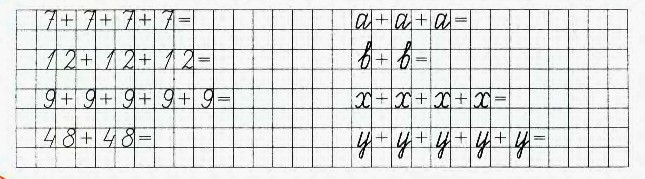 7+7+7+7=
12+12+12=
9+9+9+9+9=
48+48=
a+a+a=
b+b=
x+x+x+x=
y+y+y+y+y=